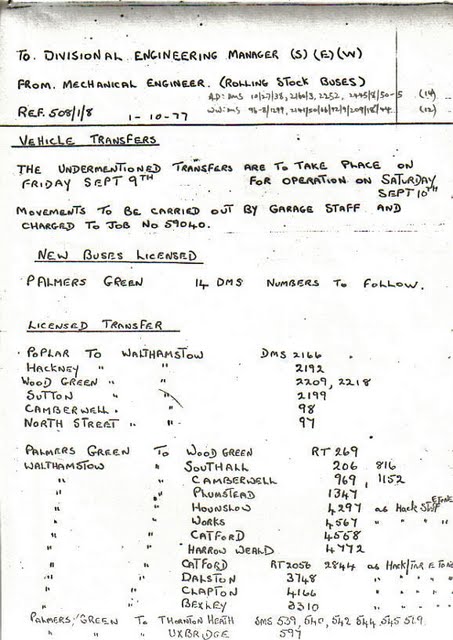 TO. DIVISIONAL ENGINEERING MANAGER (S) (E) (W)
FROM. MECHANICAL ENGINEER. (ROLLING STOCK BUSES)
AD: DMS 10/27/38, 2252, (14)
REF. 508/1/8 1-10-77 (12)
VEHICLE TRANSFERS
THE UNDERMENTIONED TRANSFERS ARE TO TAKE PLACE ON
FRIDAY SEPT 9TH FOR OPERATION ON SATURDAY
SEPT 10TH
MOVEMENTS TO BE CARRIED OUT BY GARAGE STAFF AND
CHARGED TO JOB NO 59040.
NEW BUSES LICENSED
PALMERS GREEN 14 DMS NUMBERS TO FOLLOW.
LICENSED TRANSFER
POPLAR TO WALTHAMSTOW DMS 2166
HACKNEY " " 2192
WOOD GREEN " " 2209, 2218
SUTTON " " 2199
CAMBERWELL " " 98
NORTH STREET " " 97
PALMERS GREEN TO WOOD GREEN RT 269
WALTHAMSTOW " SOUTHALL 206 816
" " CAMBERWELL 969, 1152
" " PLUMSTEAD 1347
" " HOUNSLOW 4297 as Hack Staff
" " WORKS 4567 " " "
" " CATFORD 4558
" " HARROW WEALD 4772
" " CATFORD RT 2056 2844 as Hack/
" " DALSTON 3748 " " "
" " CLAPTON 4166 " " "
" " BEXLEY 3310 " " "
PALMERS GREEN TO THORNTON HEATH SMS 539, 540, 542 544, 545 529
" " UXBRIDGE 597